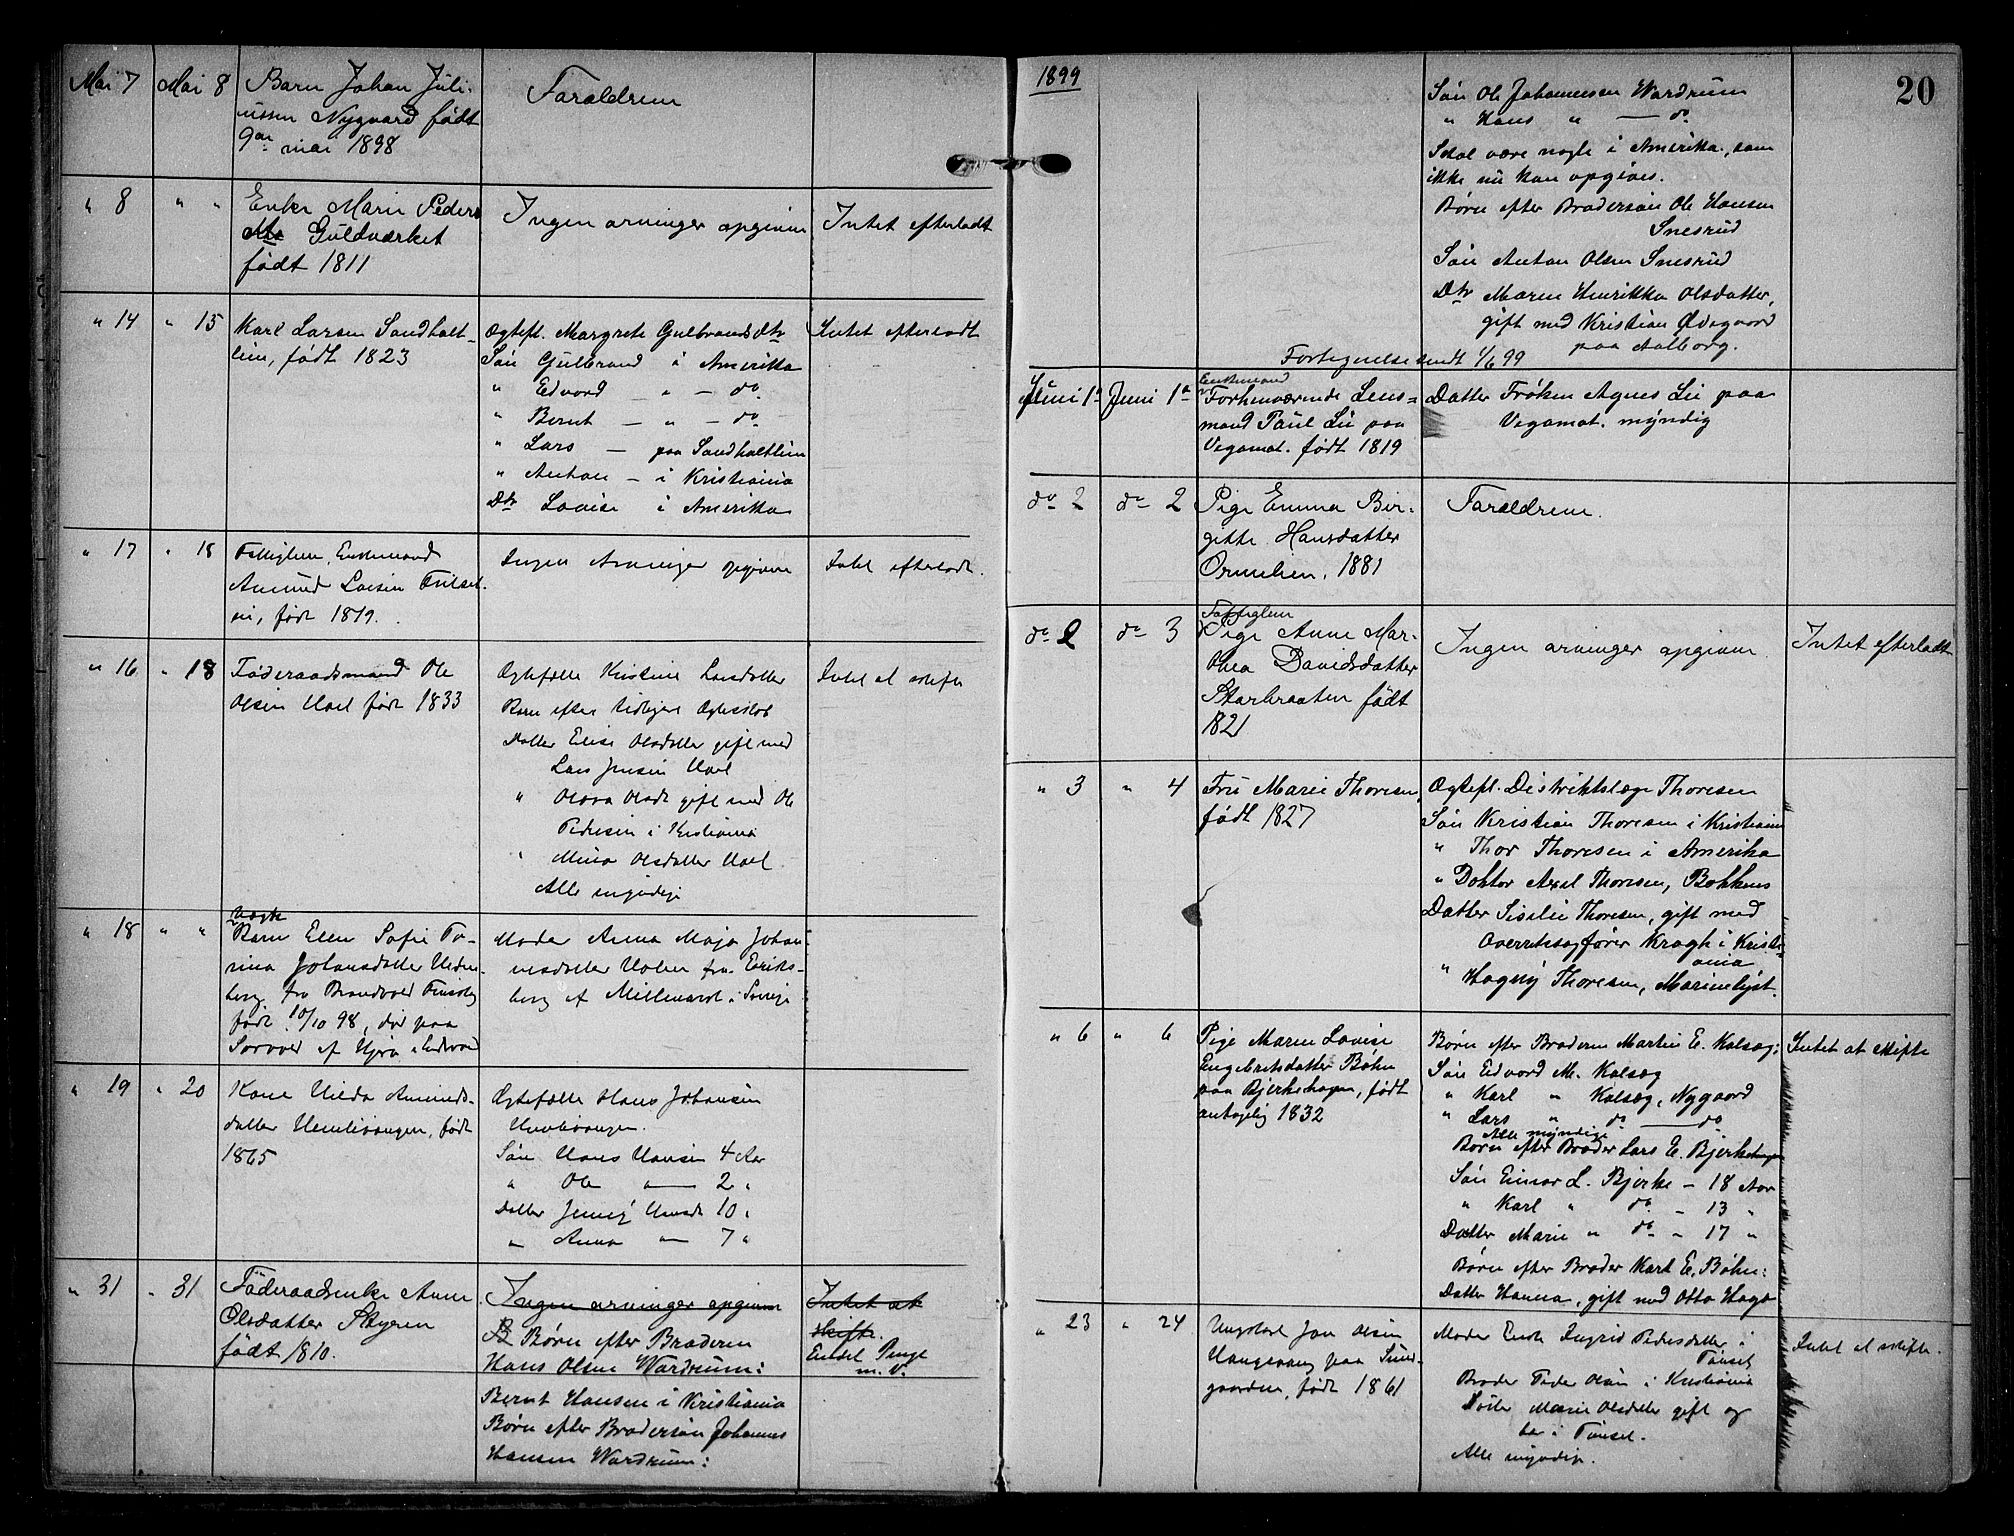 Mai 7 Mai 8 Barn Johan Juli-
ussen Nygaard født
9de mai 1898
Foraldrene
" 8 " " Enke Marie Peders
Dtr Guldværket
født 1811
Ingen arvinger opgivne
Intet efterladt
" 14 " 15 Karl Larsen Sandholt-
lien, født 1823
Ægtef. Margrete Gulbrandsdtr
Søn Gulbrand i Amerika
" Edvard " - do.
" Bernt - " - do
" Lars - paa Sandholtlien
" Anton - i Kristiania
Dtr Lovise i Amerika
Intet efterladt
" 17 " 18 Fattiglem, Enkemand
Amund Larsen
født 1819.
Ingen Arvinger opgivne
Intet efterladt.
" 16 " 18 Føderaadsmand Ole
Olsen Hoel født 1833
Ægtefælle Kristine Larsdatter
Barn efter tidligere Ægteskab
Datter Elise Olsdatter gift med
Lars Jensen Hoel
" Olava Olsdt gift med Ole
Pedersen i Kristiania
" Mina Olsdatter Hoel
Alle myndige
Intet at skifte
" 18 " " Uægte
Barn Ellen Sofie To-
rina Johansdatter Heden-
berg, fra Brandvold Finskog
født 10/10 98, død paa
Sorvod af Hjera i Eidsvold
Moder Anna Maja Johan-
nesdatter Holen fra Eriks-
berg af Millesvik i Sverige
" 19 " 20 Kone Hilda Amunds-
datter Hemlivangen, født
1865
Ægtefælle Hans Johansen
Hemlivangen.
Søn Hans Hansen 4 Aar
" Ole " 2 "
Datter Jenny Hansdt 10 "
" Anna " 7 "
" 31 " 31 Føderaadsenke Anne
Olsdatter Styren
født 1810.
Ingen arvinger opgivne
B Børn efter Broderen
Hans Olsen Wardrum:
Bernt Hansen i Kristiania
Børn efter Brodersøn Johannes
Hansen Wardrum:
Intet at
skifte.
Endel Penge
m. v.
1899
20
Søn Ole Johannessen Wardrum
" Hans " — do
Skal være nogle i Amerika, som
ikke nu kan opgives.
Børn efter Brodersøn Ole Hansen
Snesrud
Søn Anton Olsen Snesrud
Dtr Maren Henrikka Olsdatter,
gift med Kristian Ødegaard
paa Aalborg.
Fortegnelse sendt 1/6 99
Juni 1ste Juni 1ste Enkemand
Forhenværende Lens-
mand Paul Lie paa
Vegamot. født 1819
Datter Frøken Agnes Lie paa
Vegamot. myndig
do 2 do 2 Pige Emma Bir-
gitte Hansdatter
Ormlien, 1881
Foraldrene.
do 2 do 3 Fattiglem
Pige Anne Mar-
thea Davidsdatter
Starbraaten født
1821
Ingen arvinger opgivne
Intet efterladt
" 3 " 4 Fru Marie Thoresen,
født 1827
Ægtef. Distriktslæge Thoresen
Søn Kristian Thoresen i Kristiania
" Thor Thoresen i Amerika
" Doktor Axel Thoresen, Bøkkens
Datter Sisilie Thoresen, gift med
Overretssagfører Kragh i Kristi-
ania
" Hagny Thoresen, Marienlyst.
" 6 " 6 Pige Maren Lovise
Engebretsdatter Bøhn
paa Bjerkehagen, født
antagelig 1832
Børn efter Broderen Martin E. Kolsæg:
Søn Edvard M. Kolsæg
" Karl " Kolsæg, Nygaard
" Lars " do — do
Alle myndige
Børn efter Broder Lars E. Bjerkehagen
Søn Einar L. Bjerke - 18 Aar
" Karl " do - 13 "
Datter Marie " do - 17 "
Børn efter Broder Karl E. Bøhn:
Datter Hanna, gift med Otto Haga
Intet at skifte
" 23 " 24 Ungkarl Jon Olsen
Haugsvang paa Sund-
gaarden, født 1861
Moder Enke Ingrid Pedersdatter i
Tønset
Broder Peder Olsen i Kristiania
Søster Marie Olsdatter gift og
bor i Tønset.
Alle myndige.
Intet at skifte.